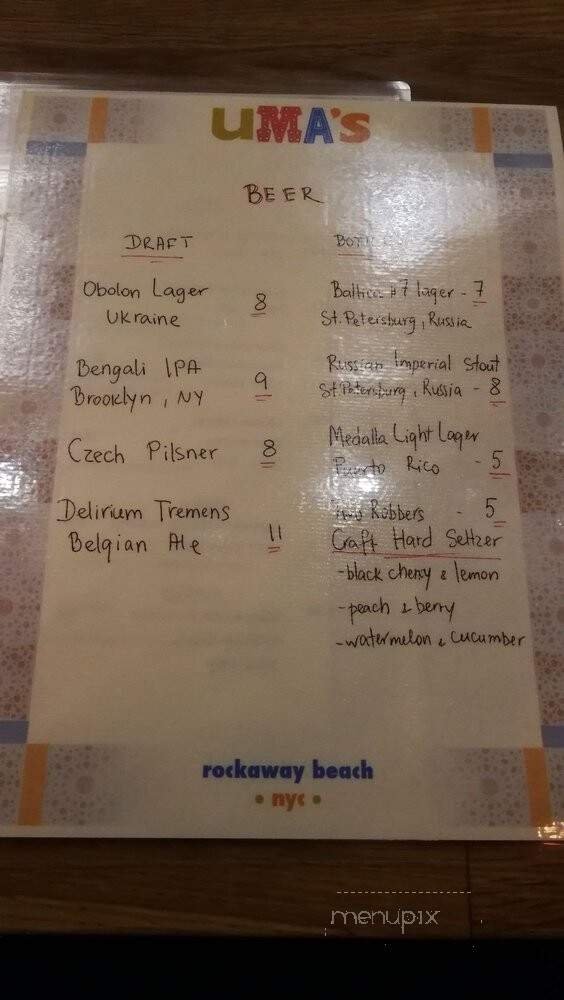 UMA'S
BEER
DRAFT
Obolon Lager 8
Ukraine
Bengali IPA 9
Brooklyn, NY
Czech Pilsner 8
Delirium Tremens
Belgian Ale 11
Baltica #7 lager - 7
St. Petersburg, Russia
Russian Imperial Stout
St Petersburg, Russia - 8
Medalla Light Lager
Puerto Rico - 5
Two Robbers - 5
Craft Hard Seltzer
- black cherry & lemon
- peach & berry
- watermelon & cucumber
rockaway beach
• nyc •
menupix